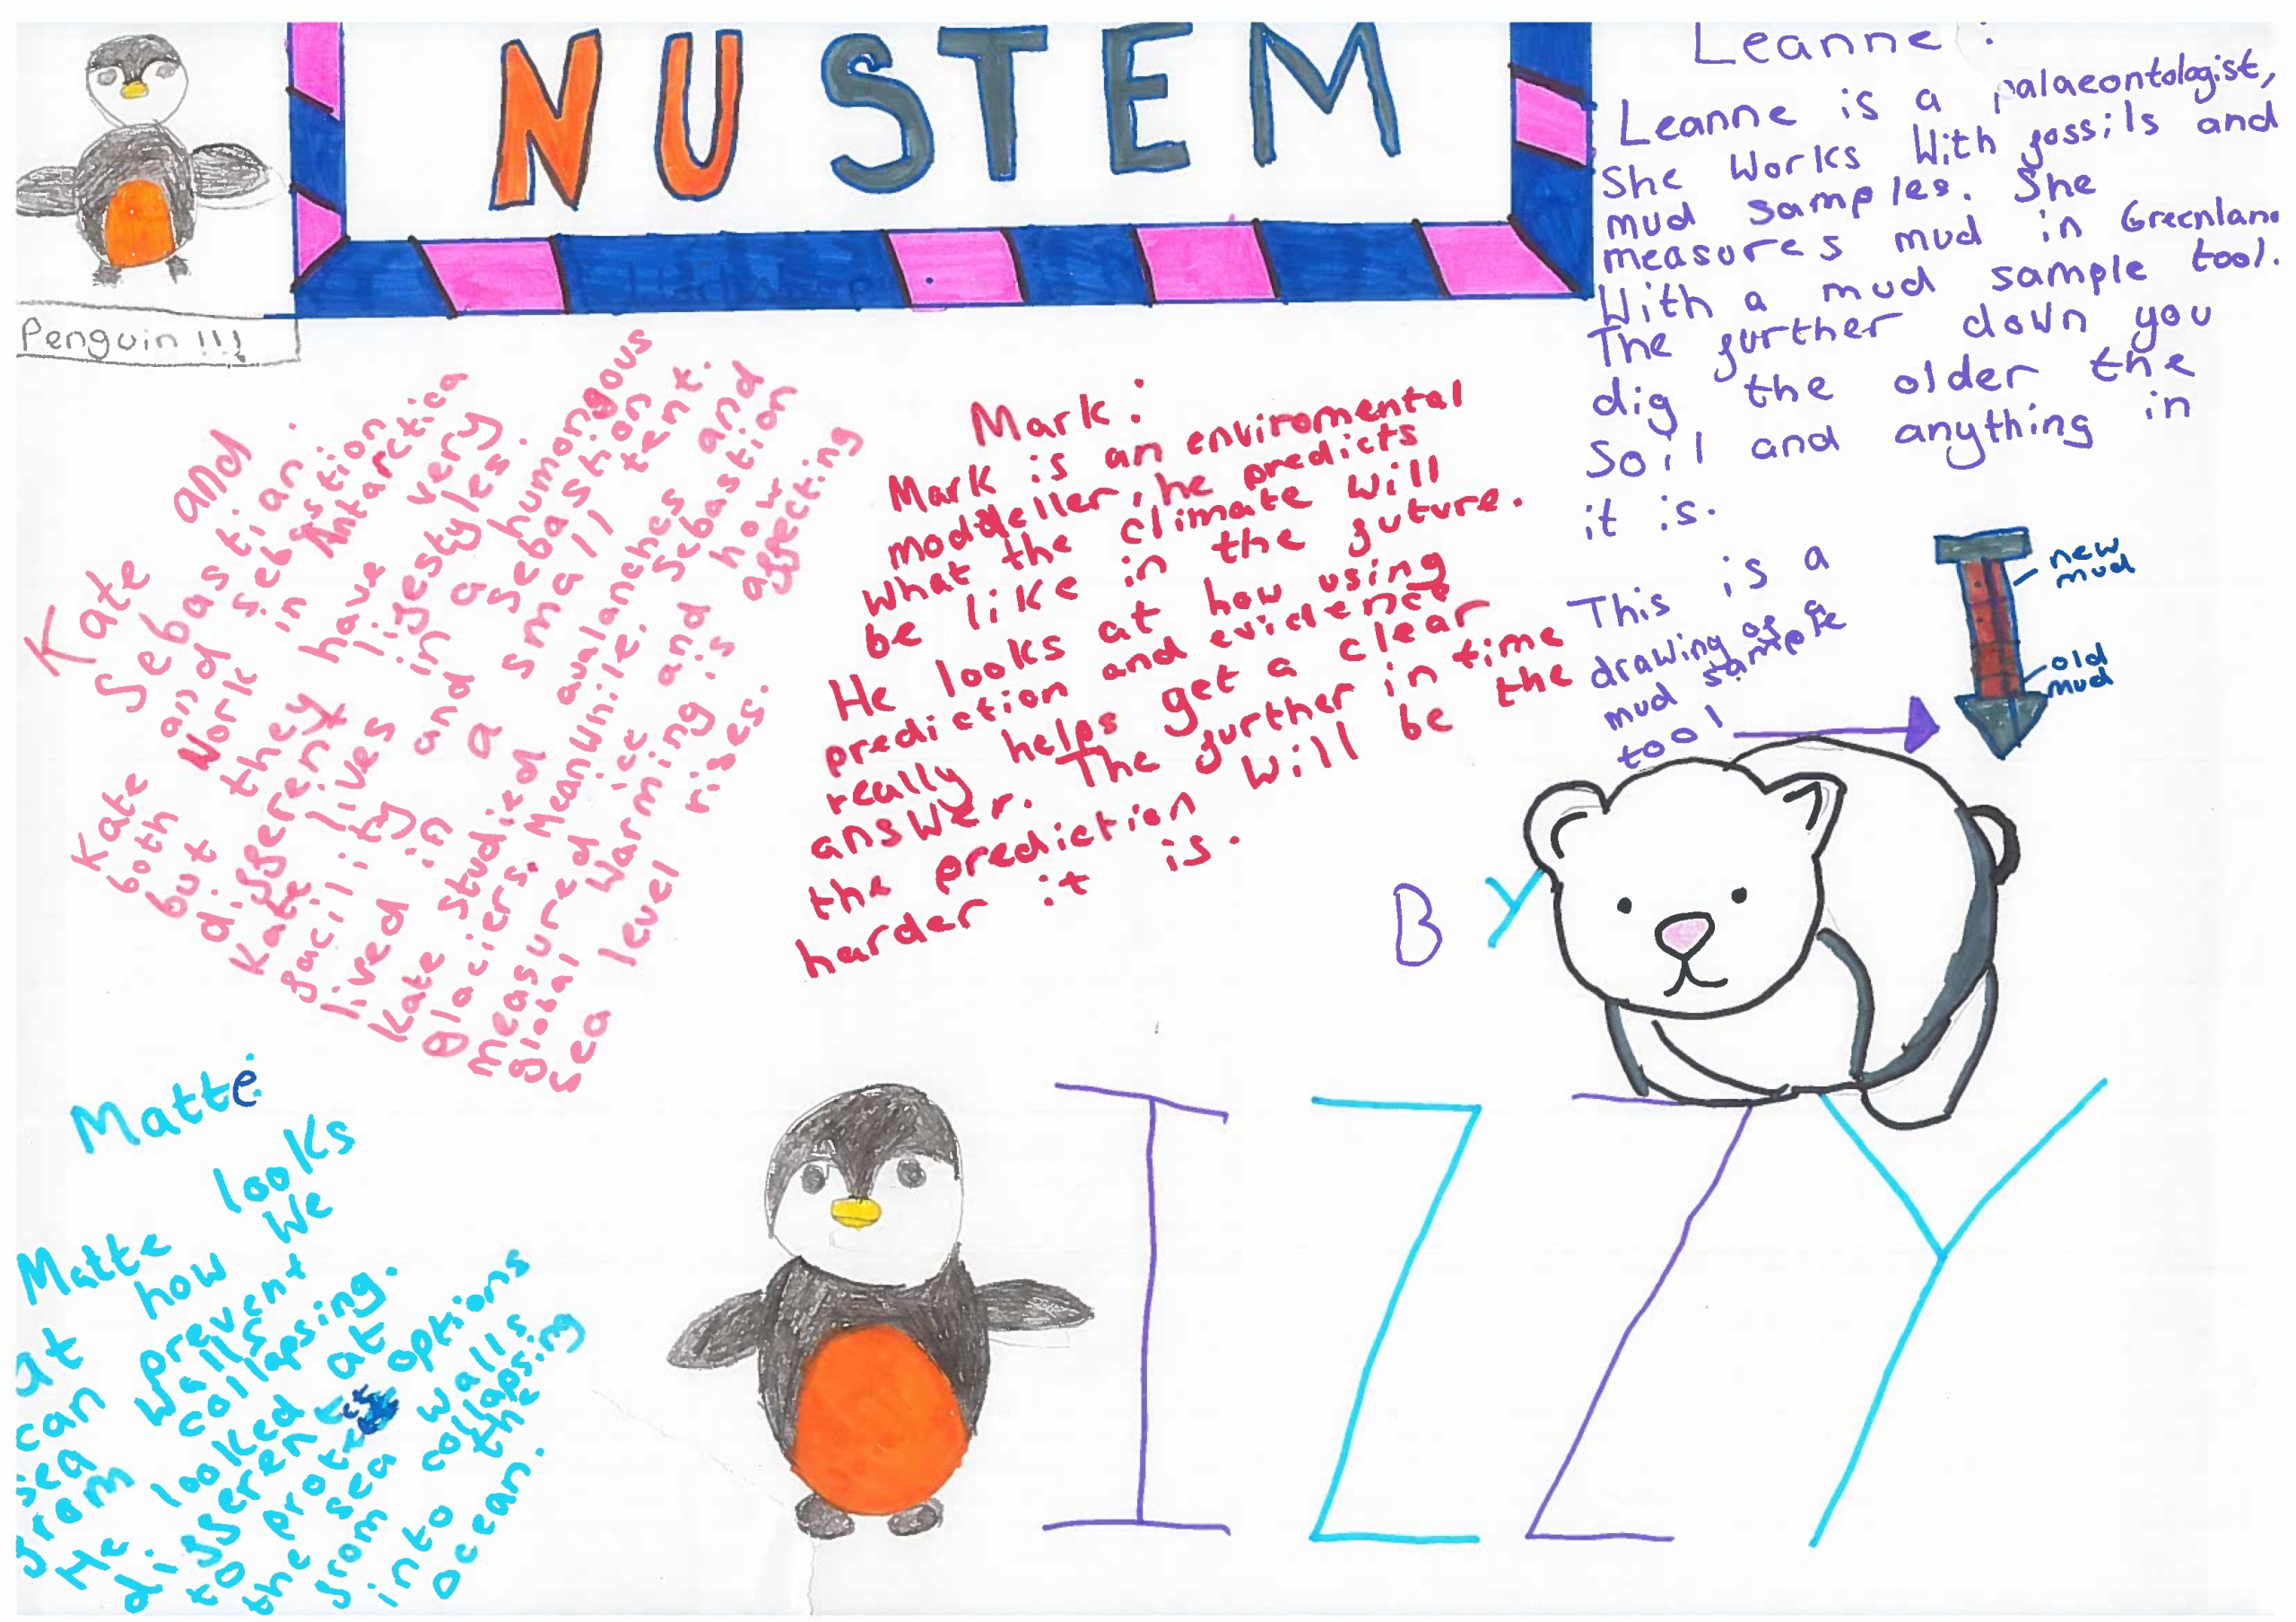 NUSTEM
Penguin !!!
Leanne :
Leanne is a palaeontologist,
She works with fossils and
mud samples. She
measures mud in Greenlan
With a mud sample tool.
The further down you
dig the older the
Soil and anything in
it is.
This is a
drawing of a
mud sample
tool
new
mud
old
mud
Kate and
Sebastian :
Kate and Sebastion
both work in Antarctica
but they have very
different lifestyles.
Kate lives in a humongous
facility and Sebastion
lived in a small tent.
Kate studied avalanches and
glaciers. Meanwhile. Sebastion
measured ice and how
global warming is affecting
sea level rises.
Mark :
Mark is an enviromental
moddeller, he predicts
what the climate will
be like in the future.
He looks at how using
prediction and evidence
really helps get a clear
answer. The further in time
the prediction will be the
harder it is.
Matte:
Matte looks
at how we
can prevent
sea walls
from collapsing.
He looked at
different options
to prot
the sea walls
from collapsing
into the
ocean.
BY
IZZY